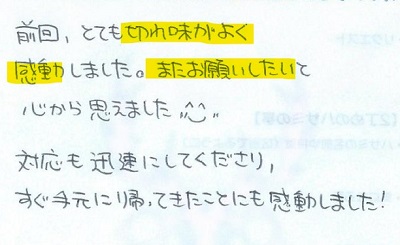 前回、とても切れ味がよく
感動しました。またお願いしたいと
心から思えました^^
対応も迅速にしてくださり、
すぐ手元に帰ってきたことにも感動しました!